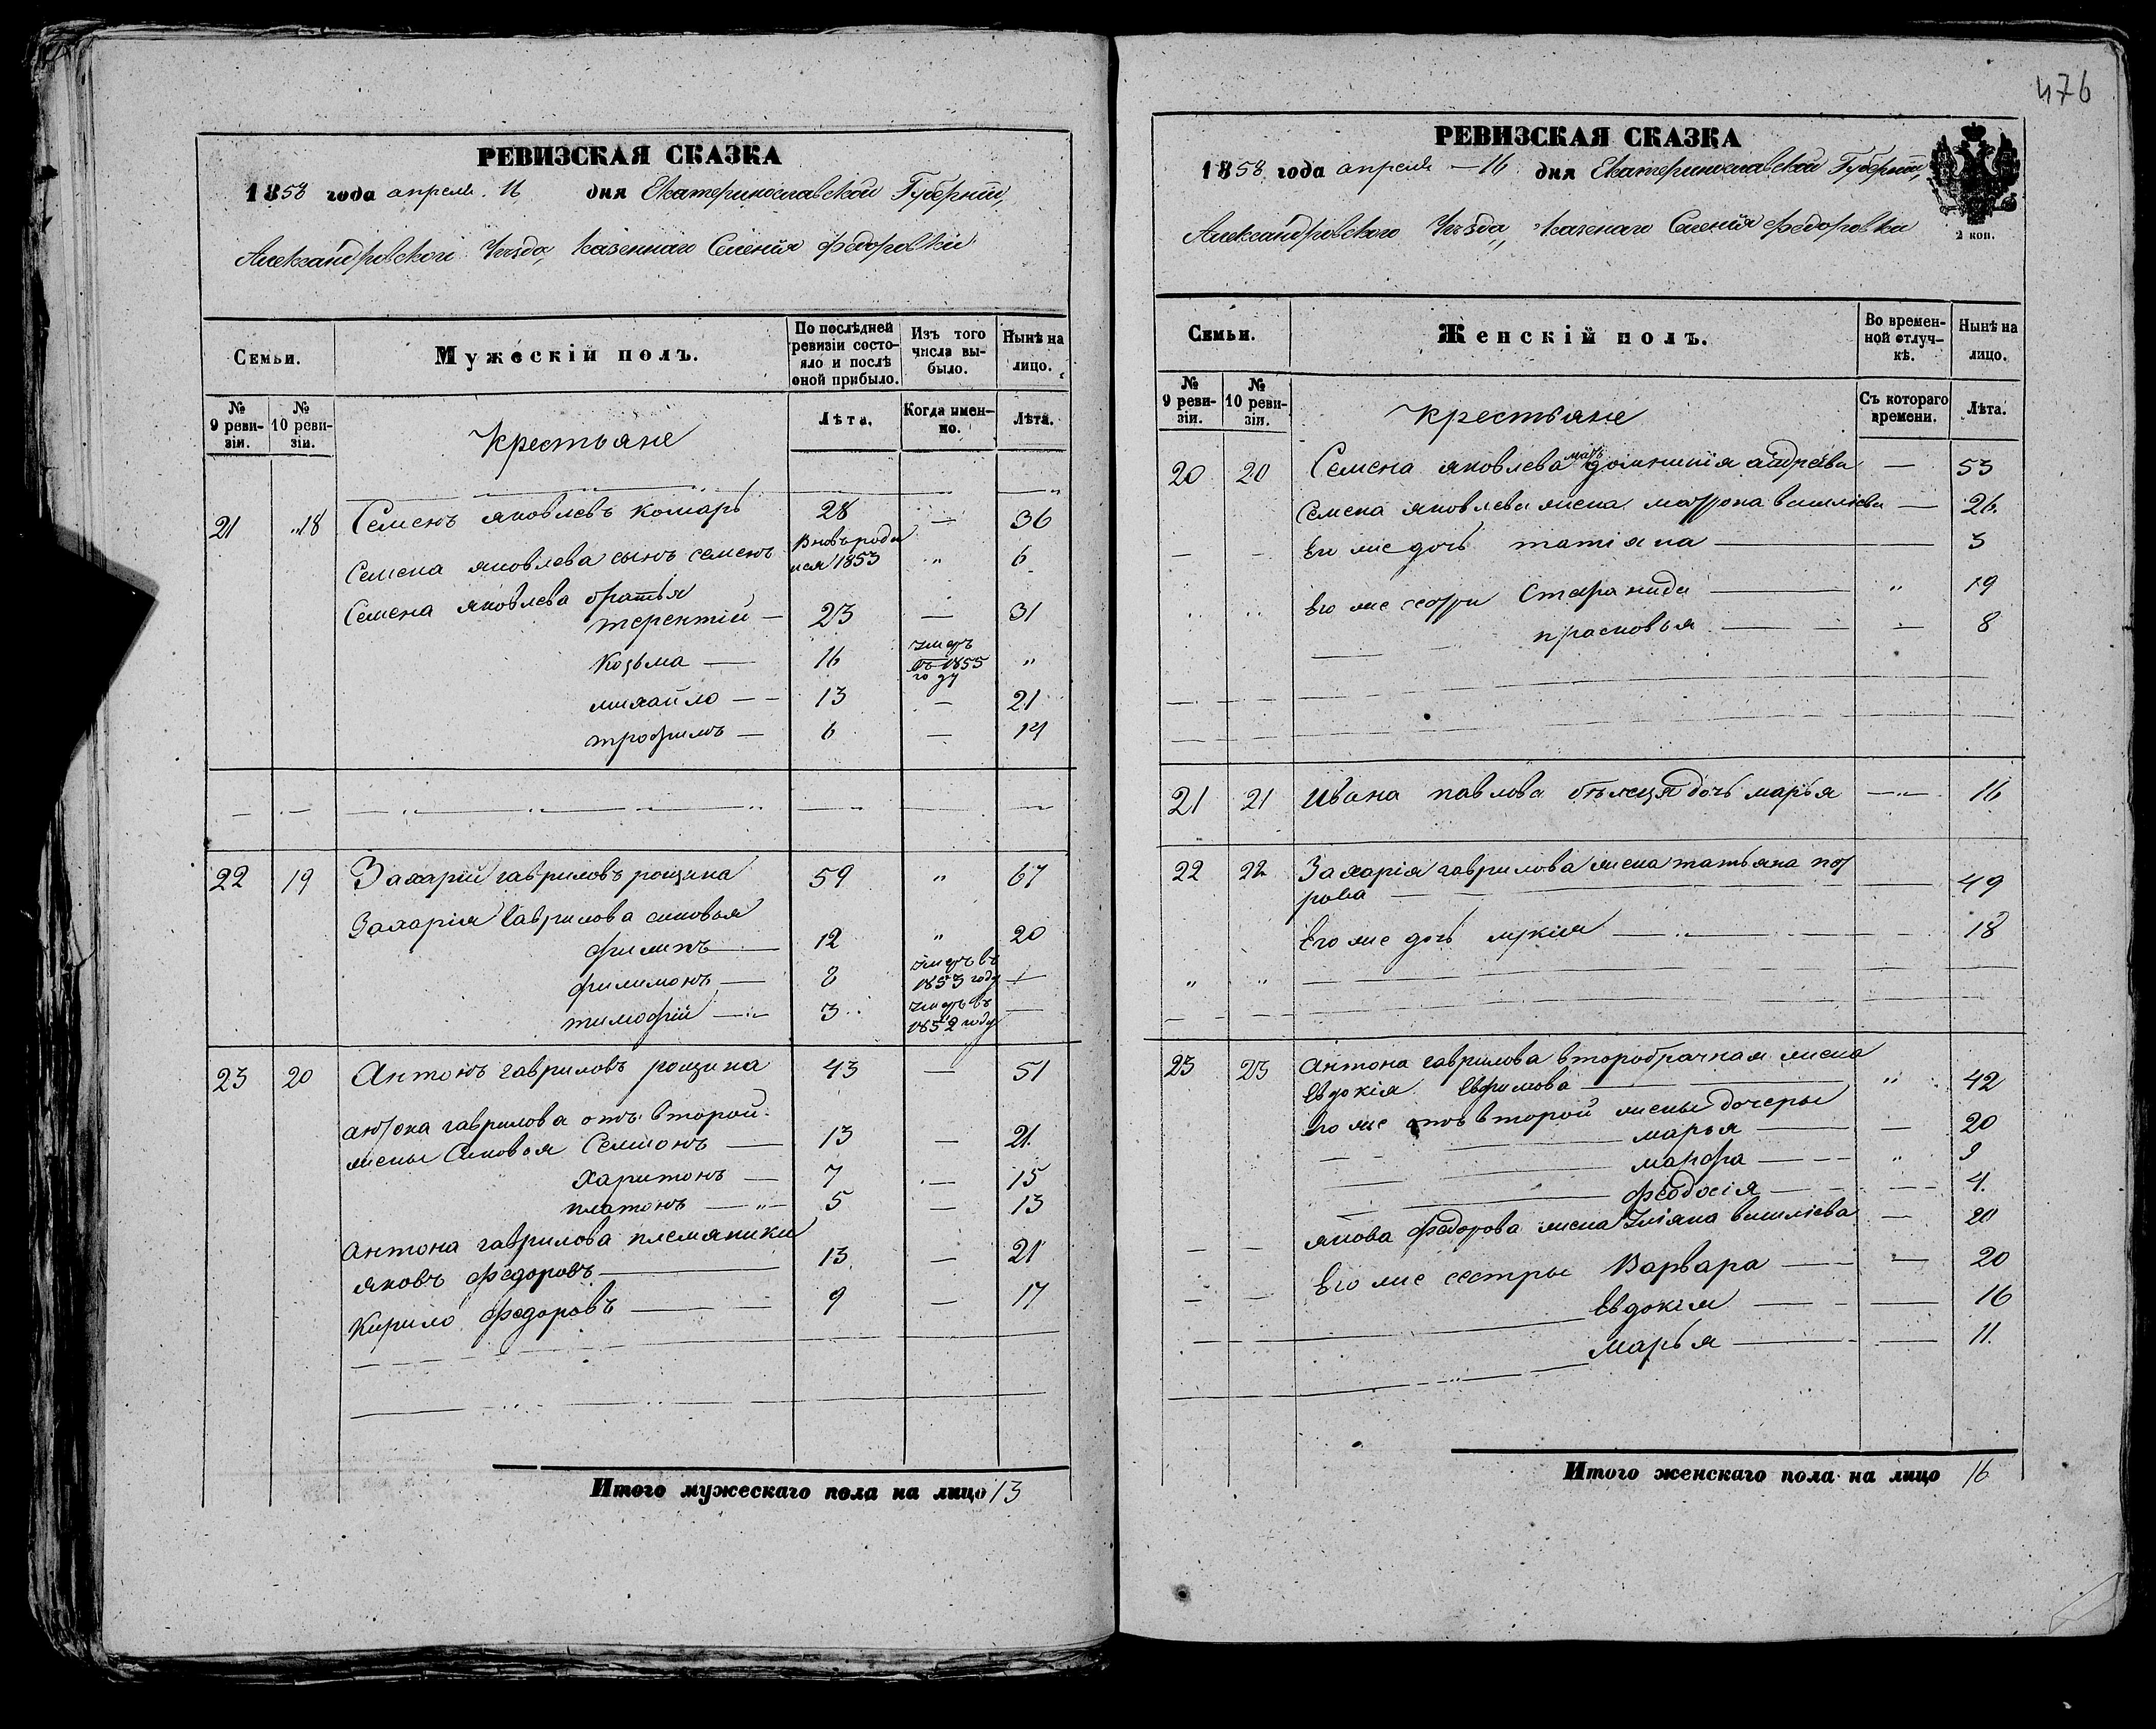 476
РЕВИЗСКАЯ СКАЗКА
1858 года апреля 16 дня Екатеринославской Губернiи,
Александровского Уезда, казеннаго Селенiя федоровки
Семьи.
Мужескiй полъ.
По послѣдней ревизiи состояло и послѣ оной прибыло.
Изъ того числа выбыло.
Нынѣ на лицо.
№ 9 ревизiи.
№ 10 ревизiи.
Крестьяне
Лѣта.
Когда именно.
Лѣта.
21 18 Семенъ яковлевъ комаръ 28 — 36
Семена яковлева сынъ семенъ вновь роди 6
лся 1853
Семена яковлева братья
терентiй — 23 — 31
козьма — 16 умеръ въ 1855 году "
михайло — 13 — 21
трофимъ — 6 — 14
22 19 Захарiй гавриловъ рощина 59 " 67
Захарiя гаврилова сыновья
филипъ — 12 " 20
филимонъ — 8 умеръ въ 1853 году —
тимофiй — 3 умеръ въ 1852 году —
23 20 Антонъ гавриловъ рощина 43 — 51
антона гаврилова отъ второй
жены Сыновья Семионъ — 13 — 21
харитонъ — 7 — 15
платонъ — 5 — 13
Антона гаврилова племяники
яковъ федоровъ — 13 — 21
Кирило федоровъ — 9 — 17
Итого мужескаго пола на лицо 13
РЕВИЗСКАЯ СКАЗКА
1858 года апреля — 16 дня Екатеринославской Губернiи,
Александровского Уѣзда, казенаго Селенiя федоровки
2 коп.
Семьи.
Женскiй полъ.
Во временной отлучкѣ.
Нынѣ на лицо.
№ 9 ревизiи.
№ 10 ревизiи.
крестьяне
Съ котораго времени.
Лѣта.
20 20 Семена яковлева мать домникiя — 53
Семена яковлева жена матрона василiева — 26
Его же дочь татiяна — 3
Его же сестри Степанида — " 19
прасковья — 8
21 21 Ивана павлова дочь марья — 16
22 22 Захарiя гаврилова жена татьяна пет
рова — 49
Его же дочь — 18
23 23 Антона гаврилова второбрачная жена
Евдокiя Ефимова — " 42
Его же отъ второй жены дочеры
марья — 20
марфа — " 9
феодосiя — 4
якова федорова жена Улiяна василiева — 20
Его же сестры Варвара — 20
Евдокiя — 16
Марья — 11.
Итого женскаго пола на лицо 16